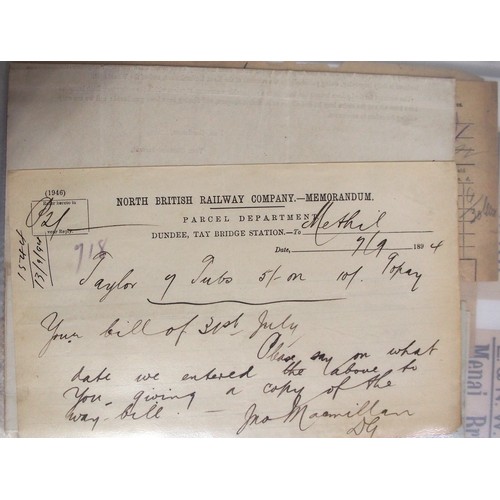 (1946)
NORTH BRITISH RAILWAY COMPANY.—MEMORANDUM.
Refer herein to
P21
your Reply.
PARCEL DEPARTMENT
DUNDEE, TAY BRIDGE STATION.—To Methil
Date, 7/9 1894
918
13/9/94
Taylor 9 Tubs 5/- on 10/. Topay
Your bill of 31st July
Please say on what
date we entered the above to
You, giving a copy of the
way-bill.
Jno Macmillan
DG
Menai Br